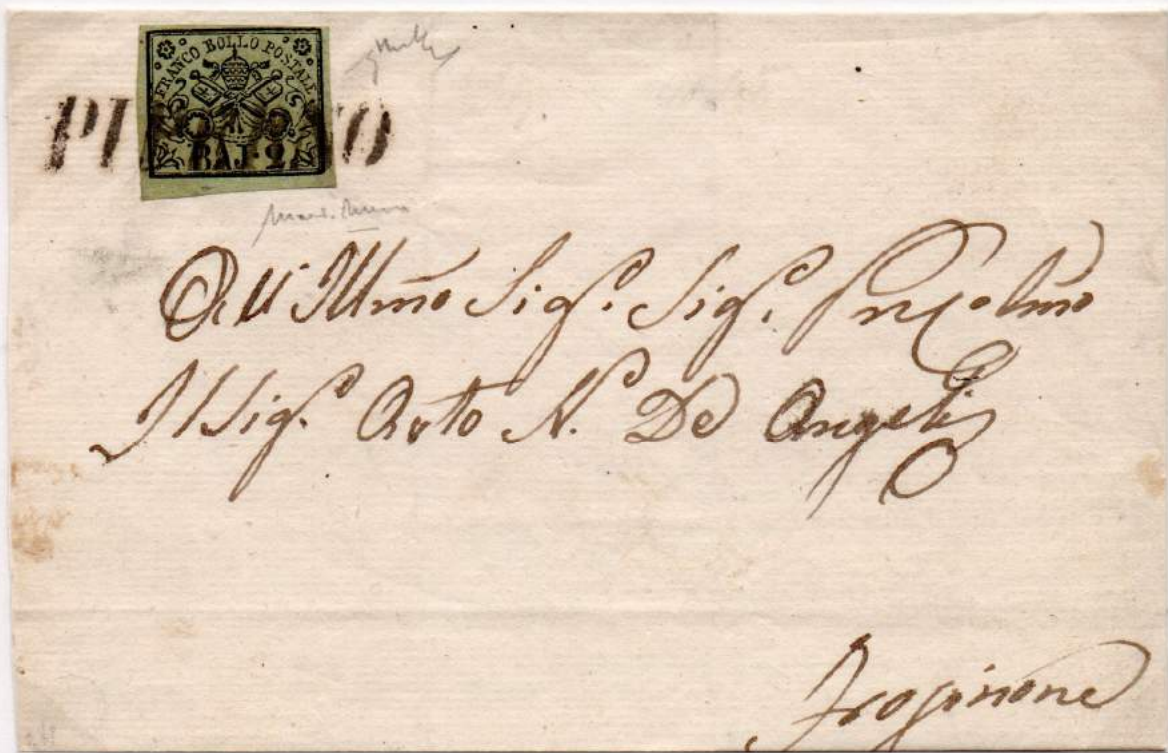 FRANCO BOLLO POSTALE
BAJ. 2
All' Illmo Sig.e Sig.e
Il Sig.e Avto N. De Angelis
Frosinone